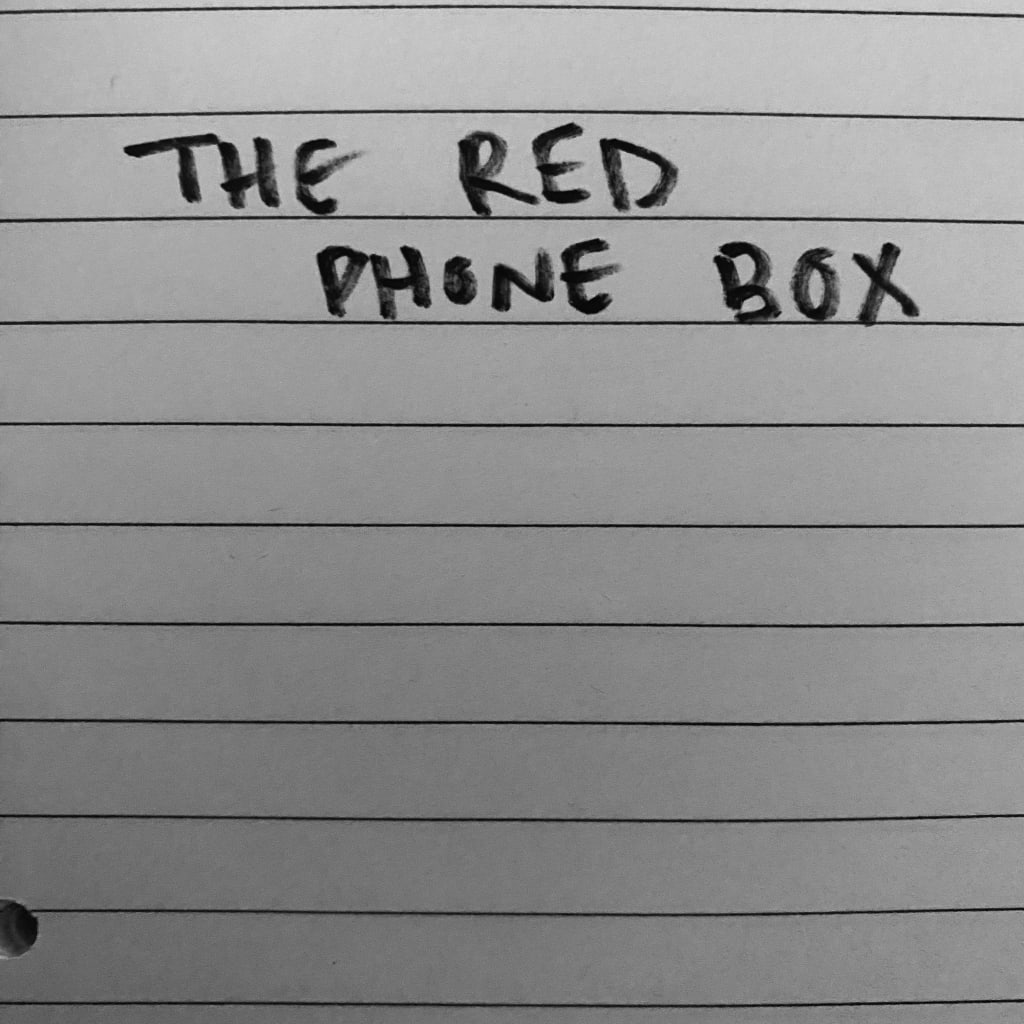 THE RED
PHONE BOX